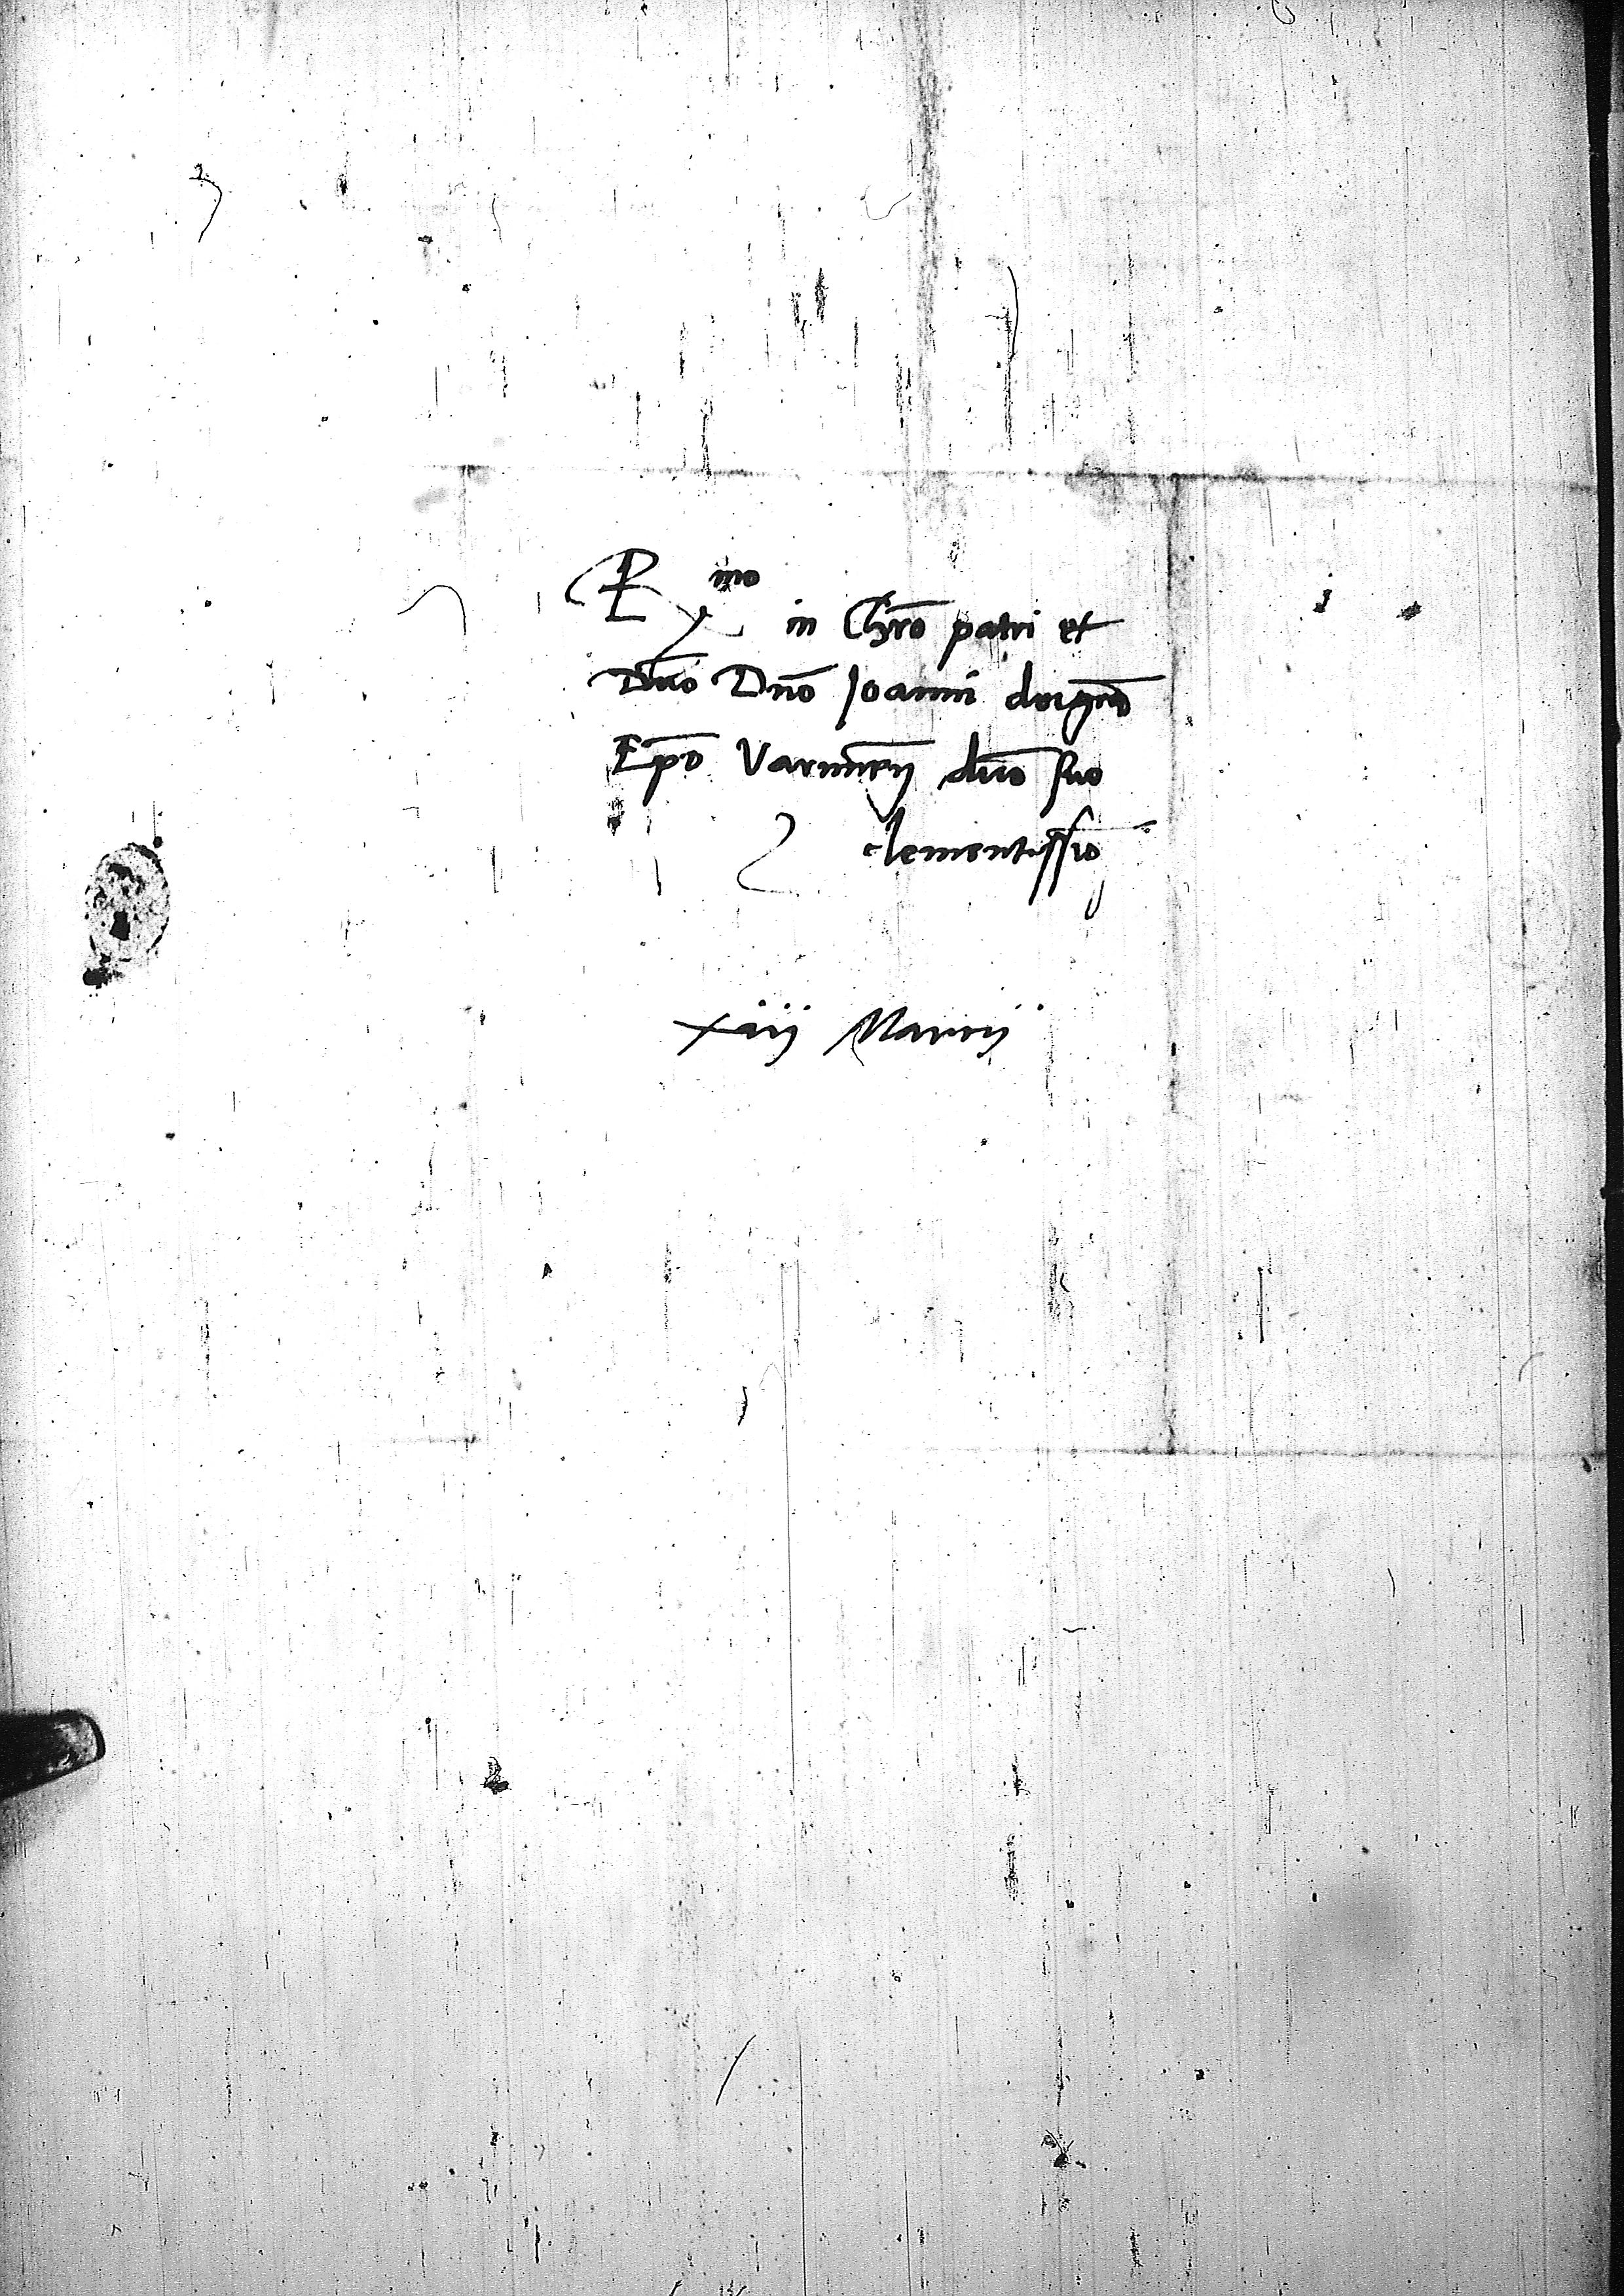 Rmo in Chro patri et
Dno Dno Joanni dei gra
Epo Varmien dno suo
clementissio
xiij Marcij